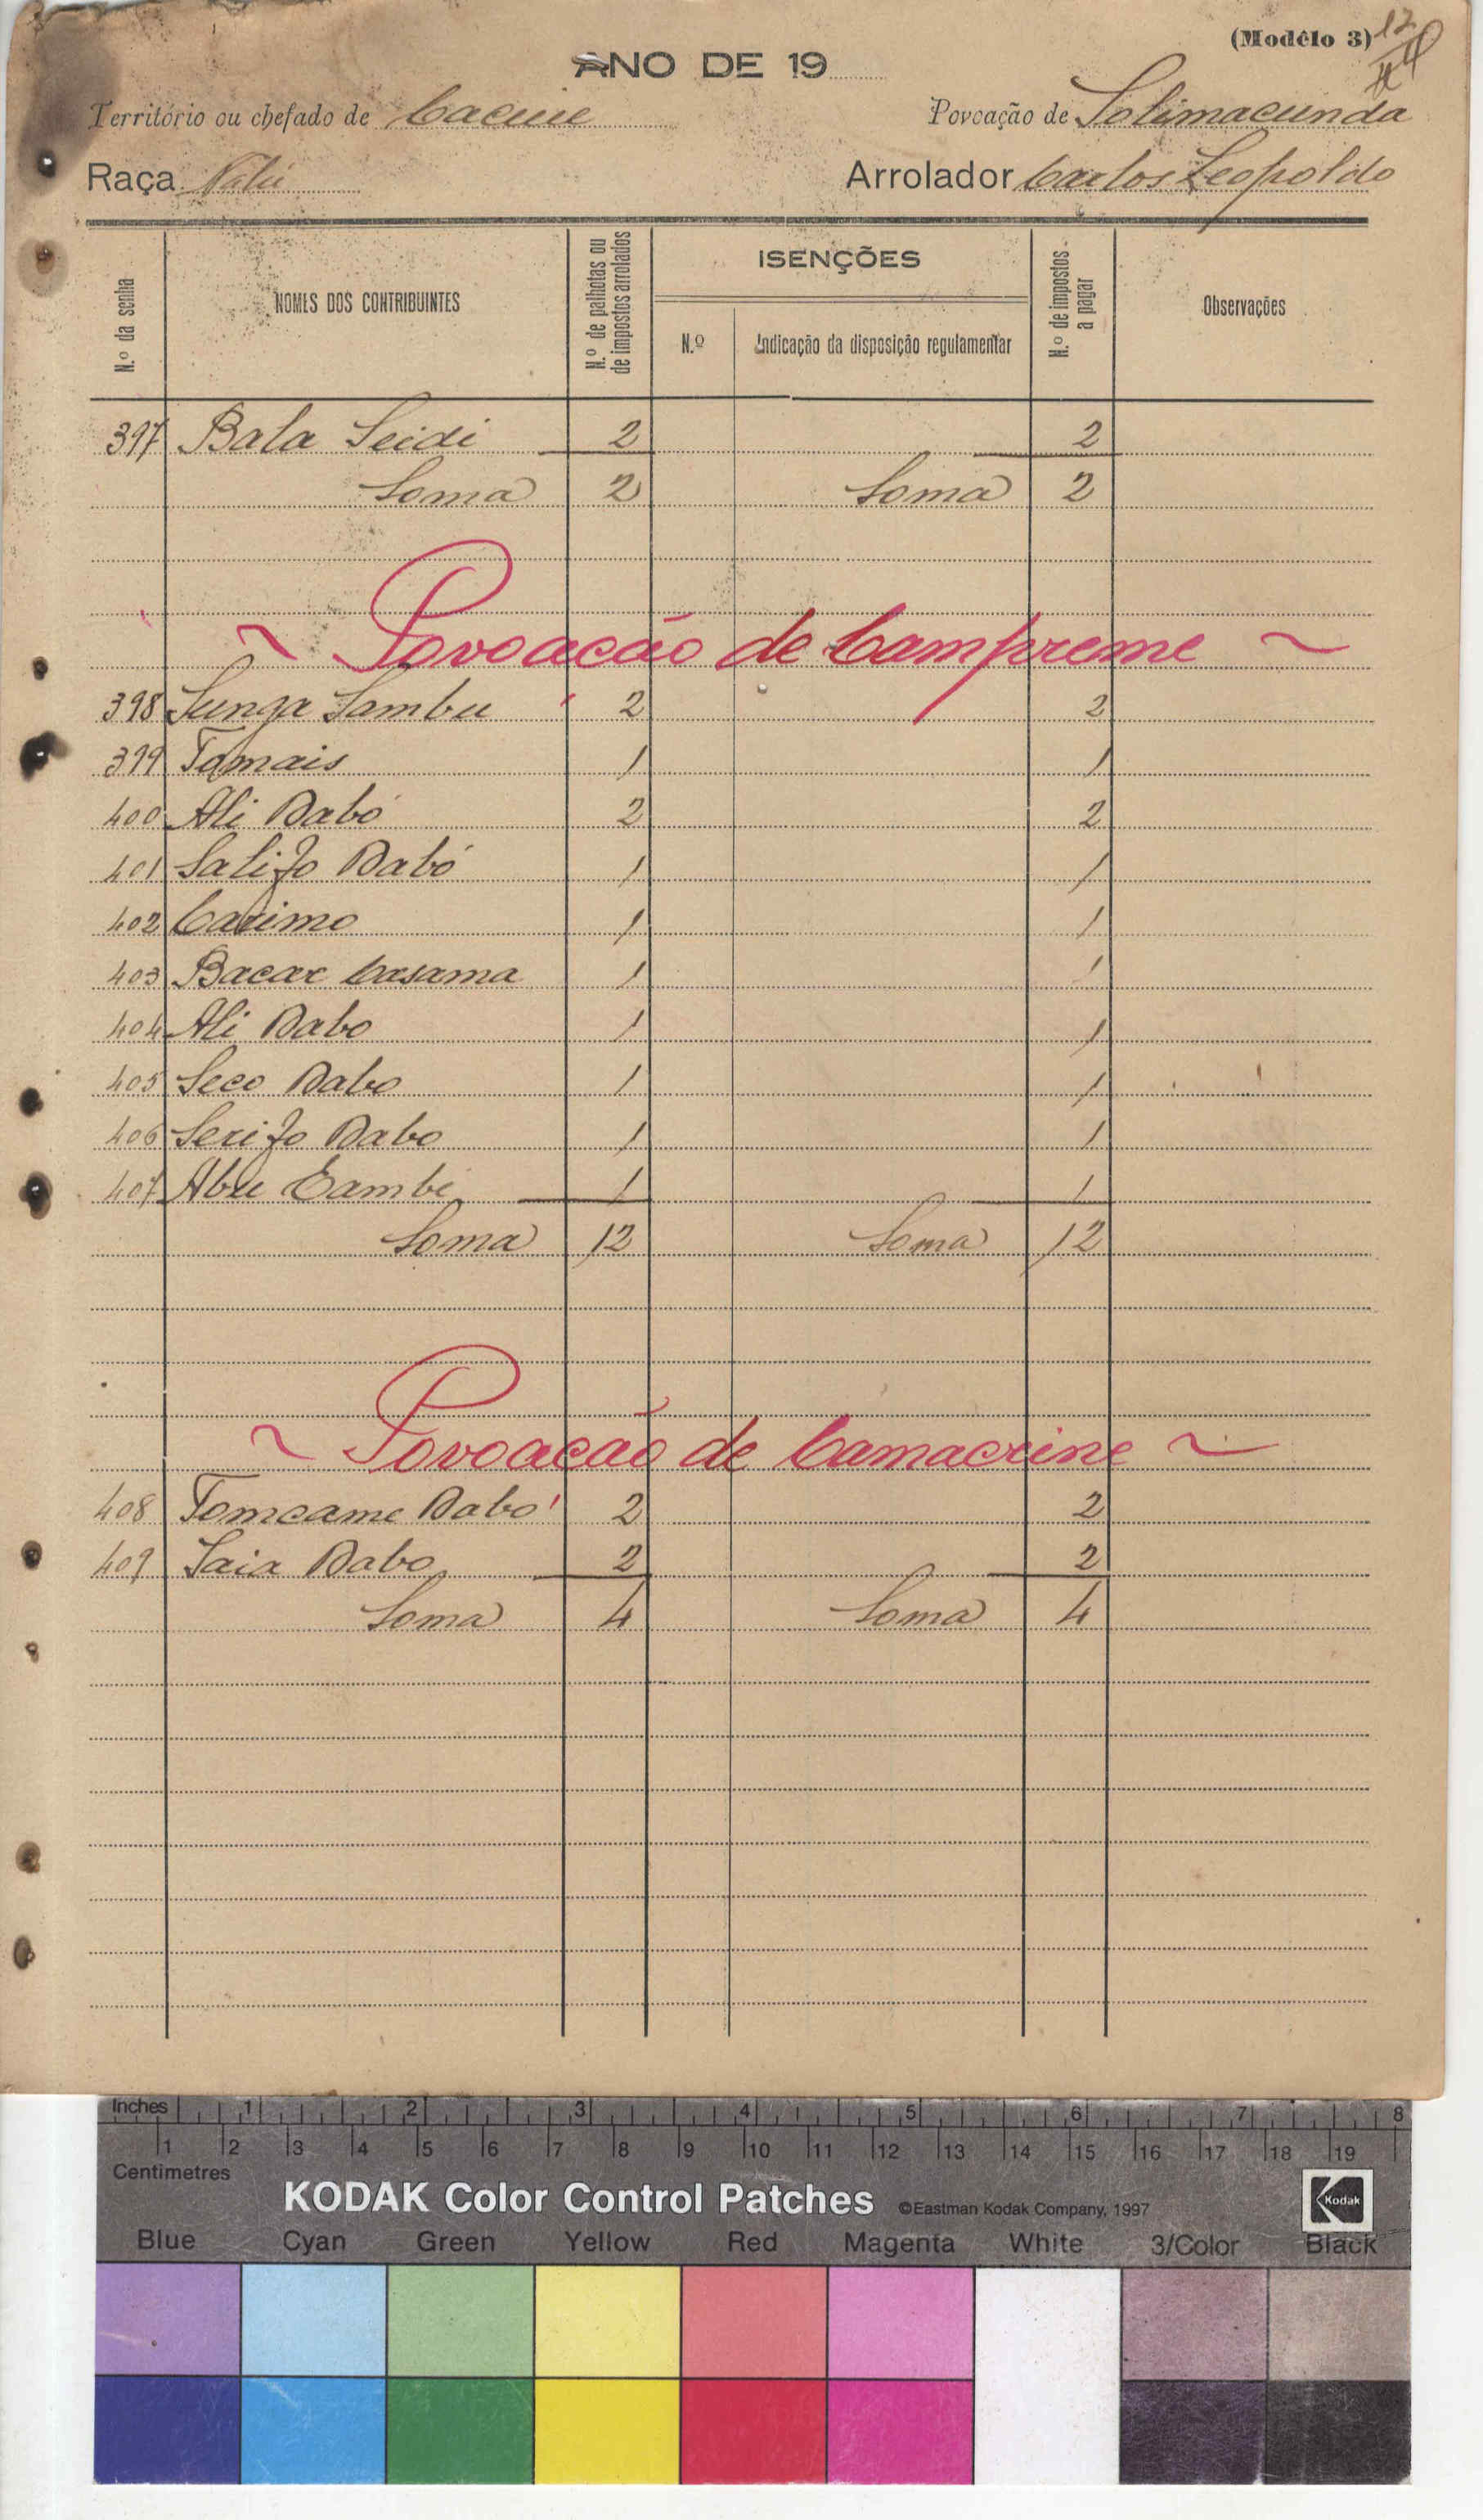 (Modêlo 3) 12
ANO DE 19
Território ou chefado de Cacine Povoação de Solimacunda
Raça Nalú Arrolador Carlos Leopoldo
N.º da senha
NOMES DOS CONTRIBUINTES
N.º de palhotas ou de impostos arrolados
ISENÇÕES
N.º
Indicação da disposição regulamentar
N.º de impostos a pagar
Observações
397 Bala Seidi 2 2
Soma 2 Soma 2
~ Povoacão de Campreme ~
398 Sunga Sambu 2 2
399 Tomais 1 1
400 Ali Dabó 2 2
401 Salifo Dabó 1 1
402 Carimo 1 1
403 Bacar Casama 1 1
404 Ali Dabo 1 1
405 Seco Dabo 1 1
406 Serifo Dabo 1 1
407 Abu Cambi 1 1
Soma 12 Soma 12
~ Povoacão de Camacrine ~
408 Tomcame Dabó 2 2
409 Saia Dabo 2 2
Soma 4 Soma 4
Inches 1 2 3 4 5 6 7 8
1 2 3 4 5 6 7 8 9 10 11 12 13 14 15 16 17 18 19
Centimetres
KODAK Color Control Patches ©Eastman Kodak Company, 1997 Kodak
Blue Cyan Green Yellow Red Magenta White 3/Color Black